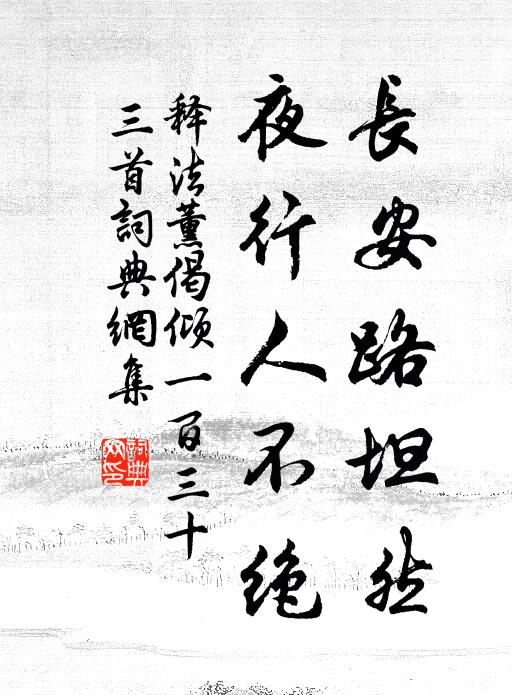 長安路坦然
夜行人不绝
释法薰偈倾一百三十
三首詞典網集
詞典
网印